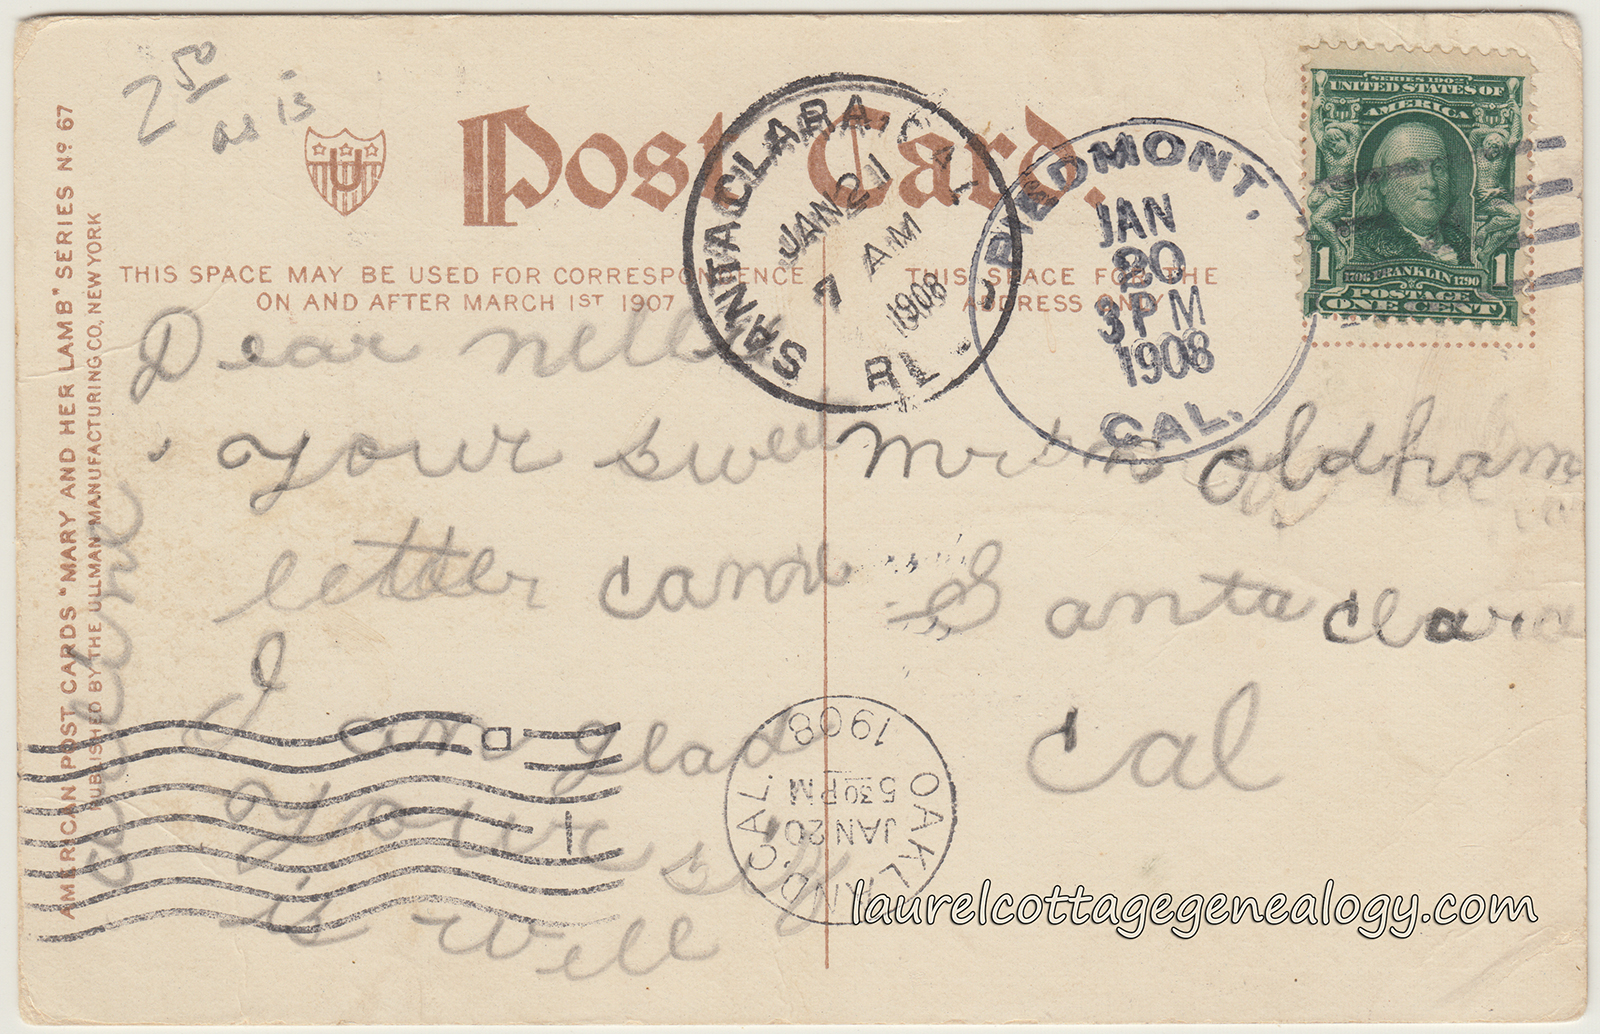 2 50
as is
AMERICAN POST CARDS "MARY AND HER LAMB" SERIES No 67
PUBLISHED BY THE ULLMAN MANUFACTURING CO, NEW YORK
U
Post Card.
THIS SPACE MAY BE USED FOR CORRESPONDENCE
ON AND AFTER MARCH 1ST 1907
THIS SPACE FOR THE
ADDRESS ONLY
SANTA CLARA, CAL
JAN 21
7 AM
1908
PIEDMONT.
JAN
20
3 PM
1908
CAL.
SERIES 1902
UNITED STATES OF
AMERICA
1 1706 FRANKLIN 1790 1
POSTAGE
ONE CENT
Dear nell
your sweet
letter came
I am glad
your self
is well
Mrs Oldham
Santa Clara
Cal
OAKLAND, CAL.
JAN 20
5 30 PM
1908
laurelcottagegenealogy.com